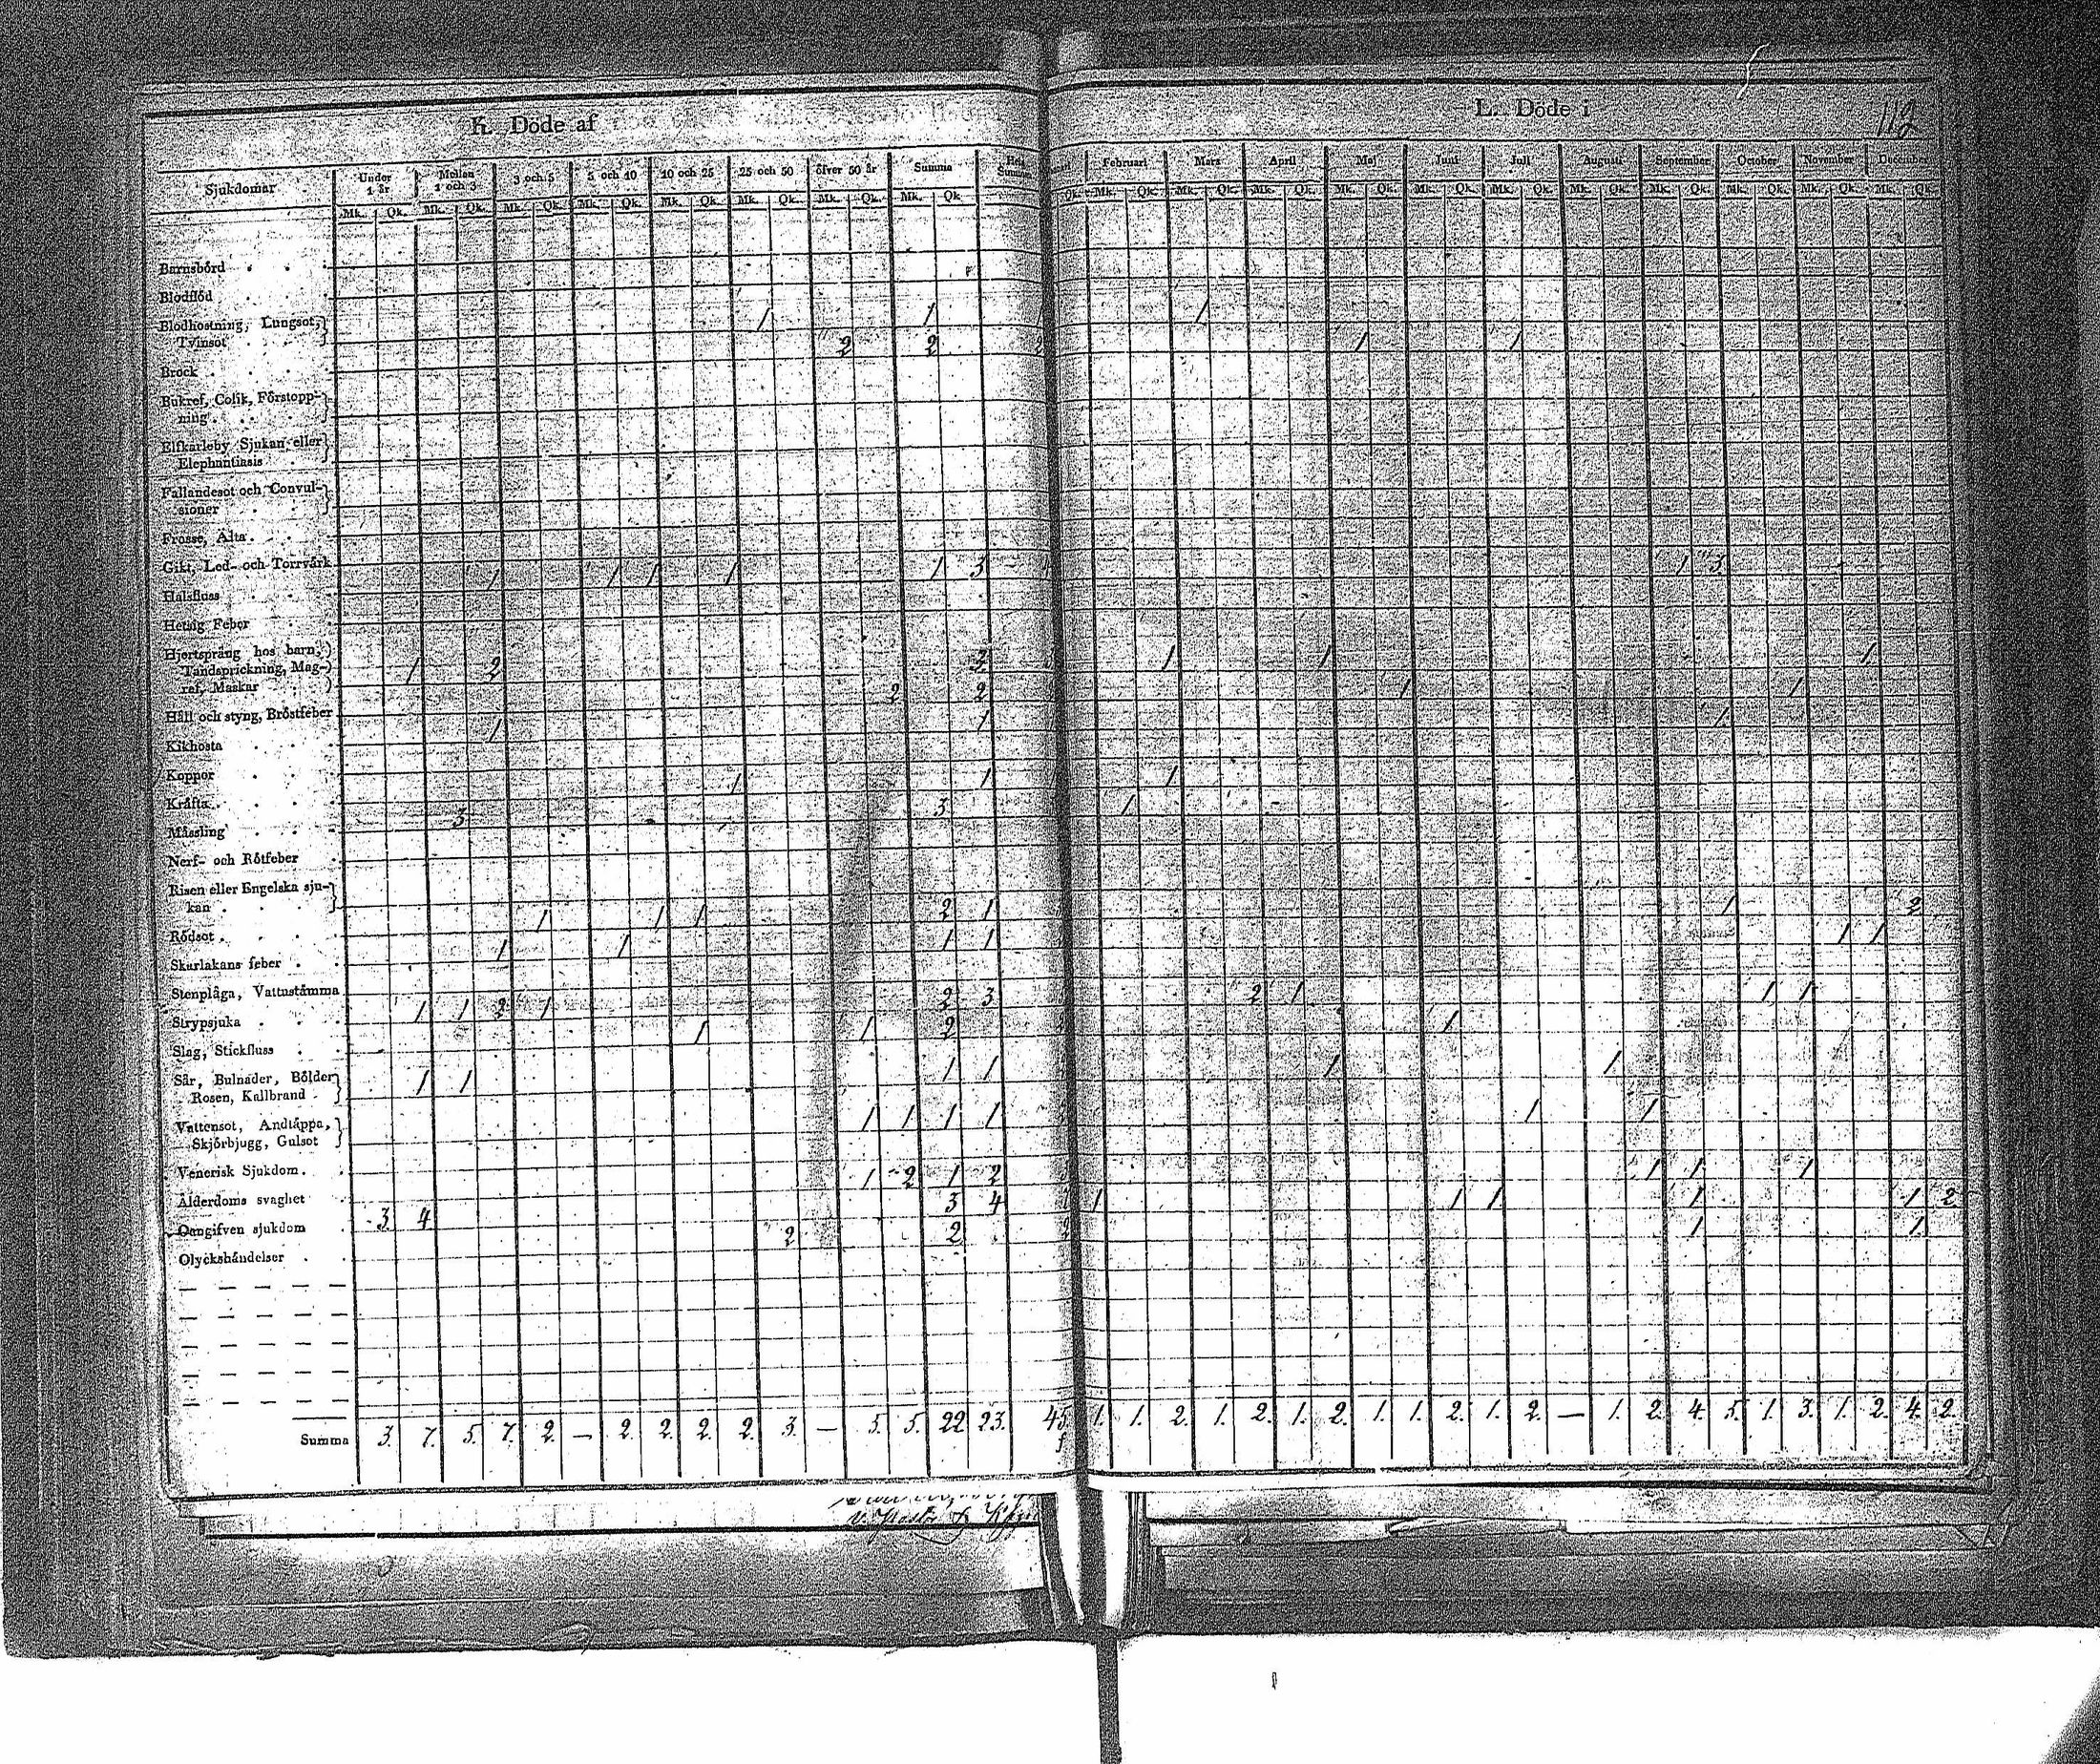 K. Döde af
L. Döde i
112
Sjukdomar Under 1 år Mellan 1 och 3 3 och 5 5 och 10 10 och 25 25 och 50 öfver 50 år Summa Hela Summan Februari Mars April Maj Juni Juli Augusti September October November December
Mk. Qk. Mk. Qk. Mk. Qk. Mk. Qk. Mk. Qk. Mk. Qk. Mk. Qk. Mk. Qk. Qk. Mk. Qk. Mk. Qk. Mk. Qk. Mk. Qk. Mk. Qk. Mk. Qk. Mk. Qk. Mk. Qk. Mk. Qk. Mk. Qk. Mk. Qk.
Barnsbörd
Blodflöd
Blodhostning, Lungsot, 1 1 1
Tvinsot 2 2 2 1 1
Bråck
Bukref, Colik, Förstopp-
ning
Elfkarleby Sjukan eller
Elephantiasis
Fallandesot och Convul-
sioner
Frossa, Älta
Gikt, Led- och Torrvärk 1 1 1 1 1 3 1 3
Halsfluss
Hetsig Feber
Hjertsprång hos barn,
Tandsprickning, Mag- 1 2 3 1 1 1
ref, Maskar 2 2 1 1
Håll och styng, Bröstfeber 1 1 1
Kikhosta
Koppor 1 1 1
Kräfta 3 3 1
Mässling
Nerf- och Rötfeber
Risen eller Engelska sju-
kan 1 1 1 2 1 1 2
Rödsot 1 1 1 1 1 1
Skarlakans feber
Stenplåga, Vattustämma 1 1 2 1 2 3 2 1 1 1
Strypsjuka 1 1 2 1
Slag, Stickfluss
Sår, Bulnader, Bölder 1 1 1 1 1 1
Rosen, Kallbrand
Vattensot, Andtäppa, 1 1 1 1 1 1
Skjörbjugg, Gulsot
Venerisk Sjukdom 1 2 1 2 1 1 1
Ålderdoms svaghet 3 4 3 4 1 1 1 1 1 2
Oangifven sjukdom 2 2 2 1 1
Olyckshändelser
Summa 3. 7. 5. 7. 2. — 2. 2. 2. 2. 3. — 5. 5. 22 23. 45 1. 1. 2. 1. 2. 1. 2. 1. 1. 2. 1. 2. — 1. 2. 4. 5. 1. 3. 1. 2. 4. 2.